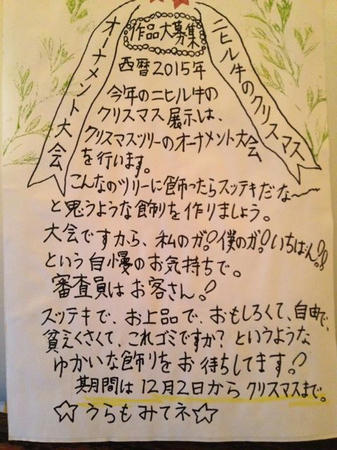 ニヒル牛のクリスマス
オーナメント大会
作品大募集
西暦2015年
今年のニヒル牛の
クリスマス展示は、
クリスマスツリーのオーナメント大会
を行います。
こんなのツリーに飾ったらスッテキだな〜
と思うような飾りを作りましょう。
大会ですから、私のが!僕のが!いちばん!!
という自慢のお気持ちで。
審査員はお客さん!
スッテキで、お上品で、おもしろくて、自由で、
貧乏くさくて、これゴミですか?というような
ゆかいな飾りをお待ちしてます!
期間は12月2日からクリスマスまで。
☆うらもみてネ☆